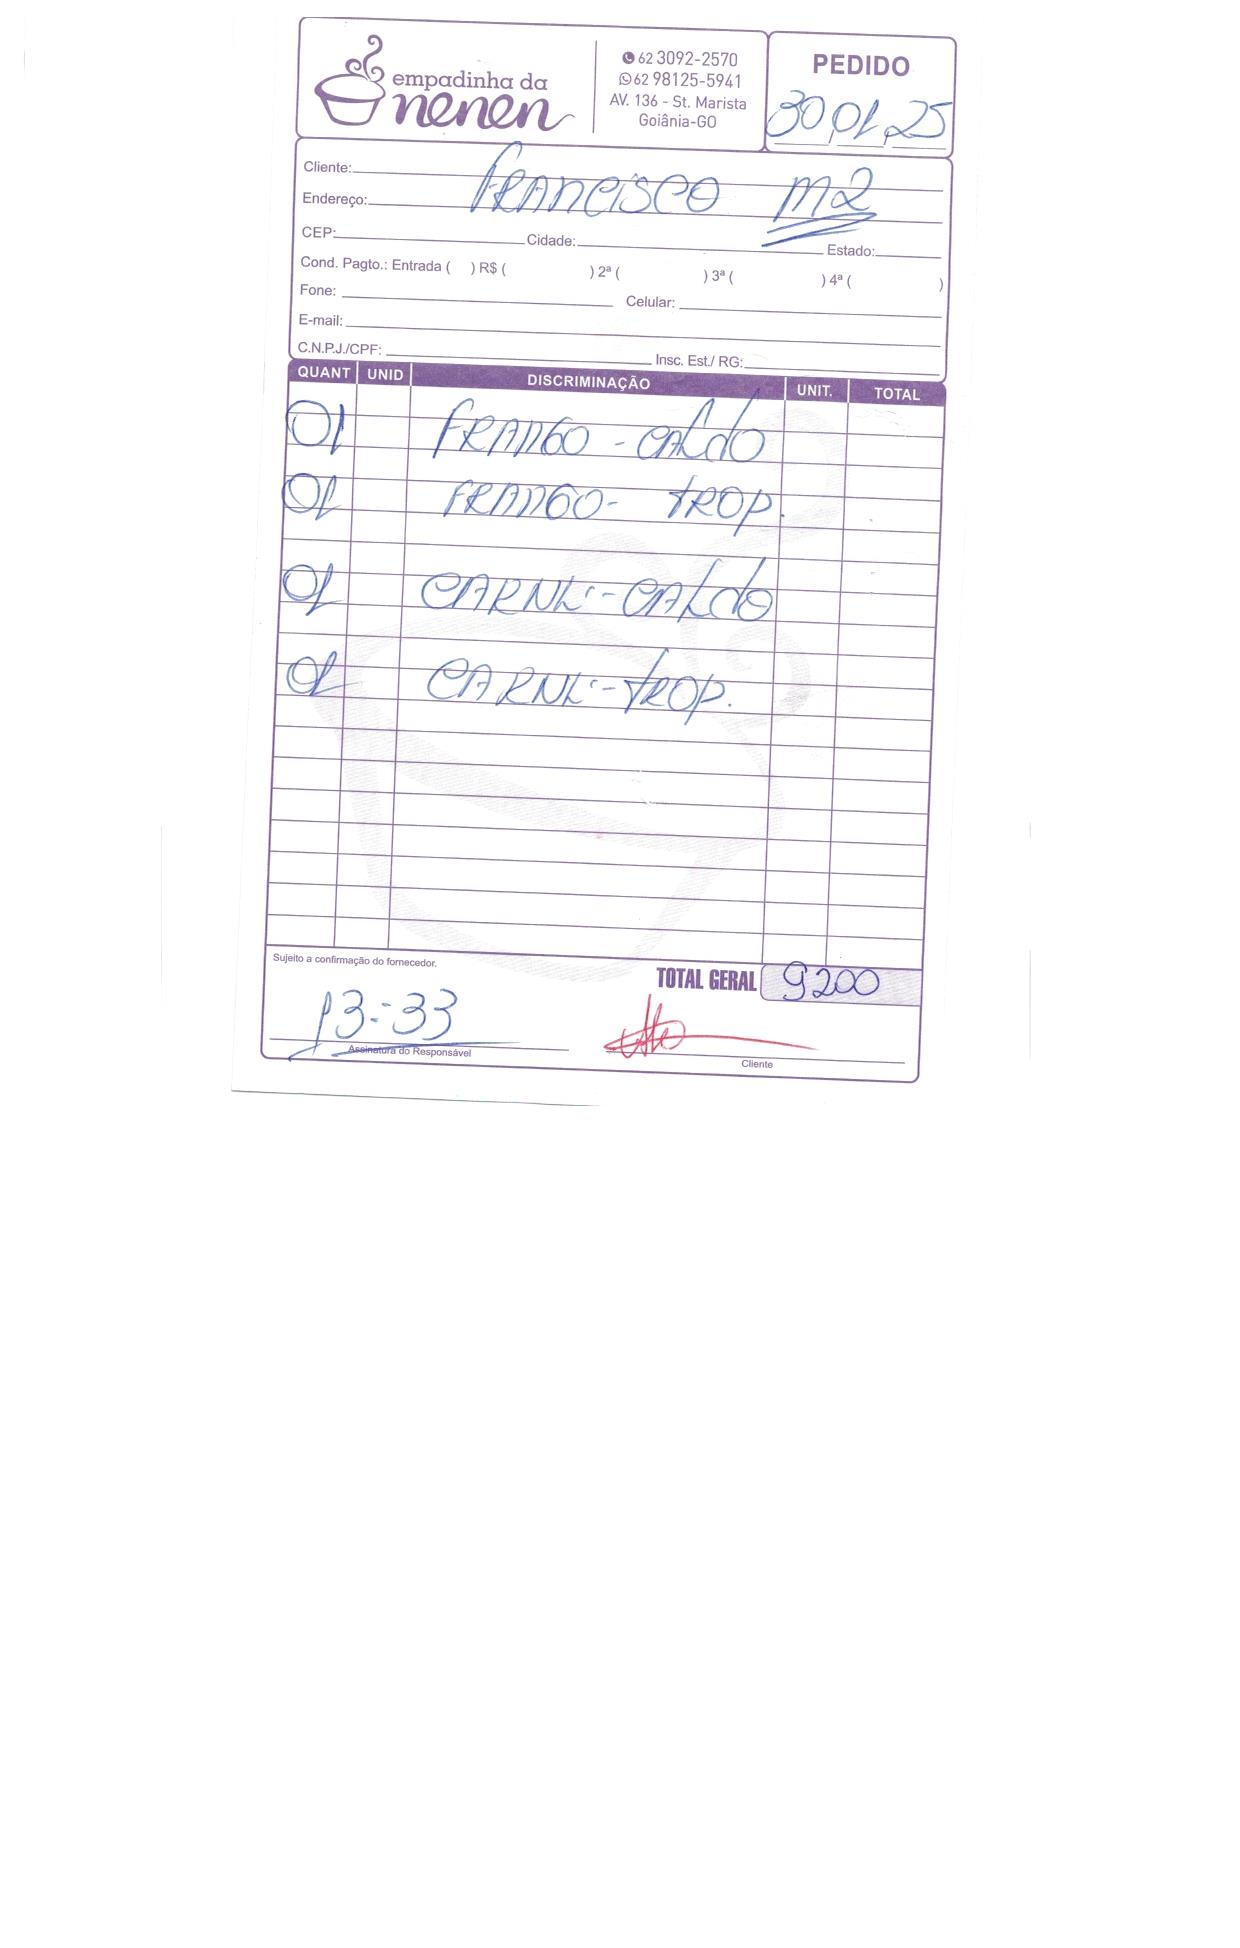 empadinha da
nenen
62 3092-2570
62 98125-5941
AV. 136 - St. Marista
Goiânia-GO
PEDIDO
30,01,25
Cliente: FRANCISCO M2
Endereço:
CEP: Cidade: Estado:
Cond. Pagto.: Entrada ( ) R$ ( ) 2ª ( ) 3ª ( ) 4ª ( )
Fone: Celular:
E-mail:
C.N.P.J./CPF: Insc. Est./ RG:
QUANT UNID DISCRIMINAÇÃO UNIT. TOTAL
01 FRANGO - CALDO
01 FRANGO - TROP.
01 CARNE - CALDO
01 CARNE - TROP.
Sujeito a confirmação do fornecedor.
TOTAL GERAL 9200
13:33
Assinatura do Responsável
Cliente